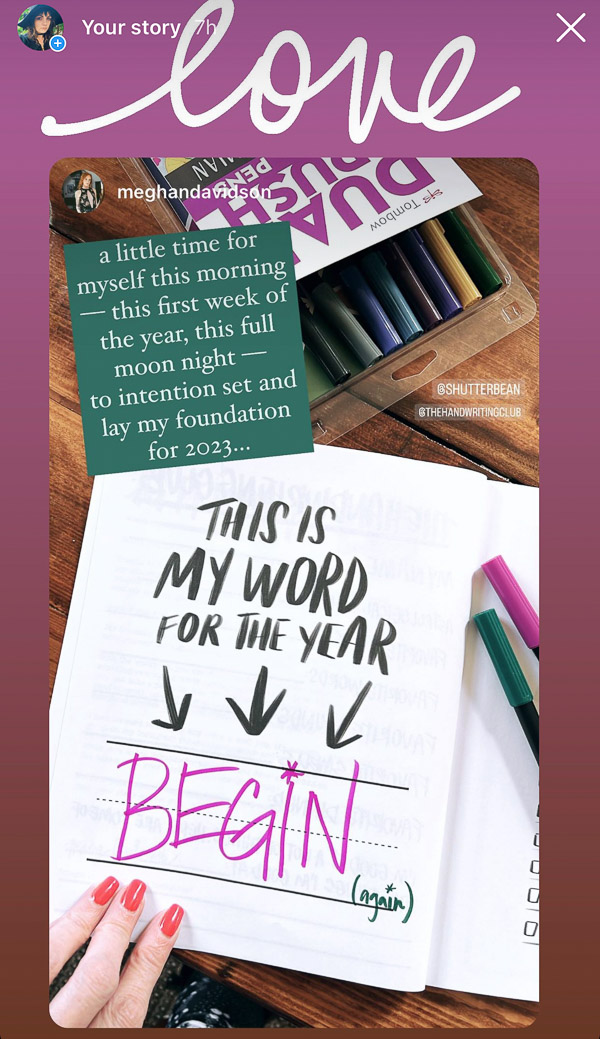 Your story 7h
love
meghandavidson
DUAL
BRUSH
PENS
Tombow
a little time for
myself this morning
— this first week of
the year, this full
moon night —
to intention set and
lay my foundation
for 2023...
@SHUTTERBEAN
@THEHANDWRITINGCLUB
THIS IS
MY WORD
FOR THE YEAR
BEGIN
(again)